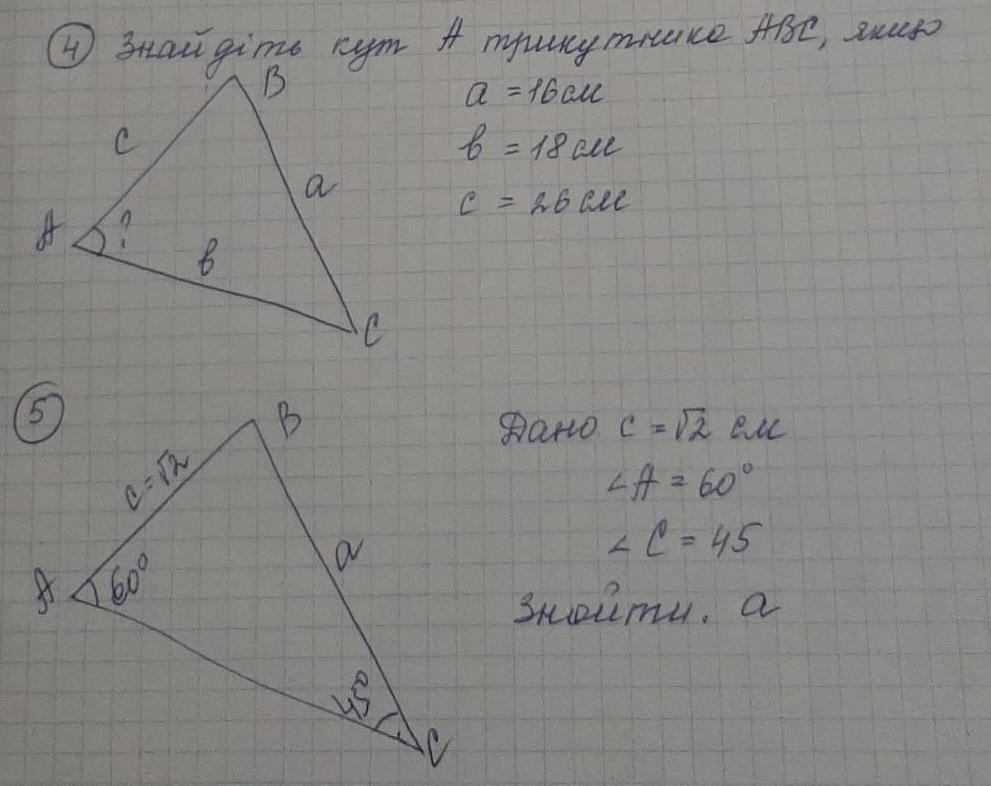 4 Знайдіть кут А трикутника АВС, якщо
B
a = 16 см
c
в = 18 см
a
c = 26 см
A
?
в
C
5
B
Дано c = √2 см
c = √2
∠A = 60°
a
∠C = 45
A
60°
Знайти. a
45°
C